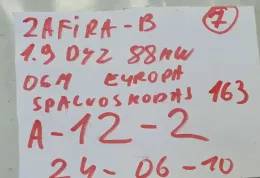 ZAFIRA-B 7
1.9 DYZ 88KW
OGM EVROPA
SPALVOSKODAS 163
A-12-2
24-06-10